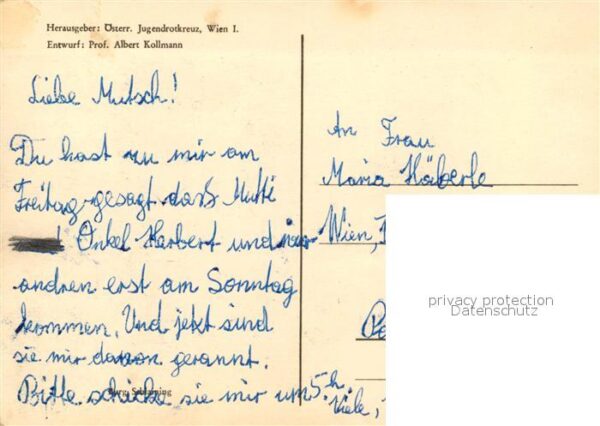 Herausgeber: Österr. Jugendrotkreuz, Wien I.
Entwurf: Prof. Albert Kollmann
Liebe Mutsch!
Du hast zu mir am
Freitag gesagt dass Mutti
Onkel Harbert und
andren erst am Sonntag
kommen. Und jetzt sind
sie mir davon gerannt.
Bitte schicke sie mir um 5 h.
Viele,
An Frau
Maria Häberle
Wien,
privacy protection
Datenschutz